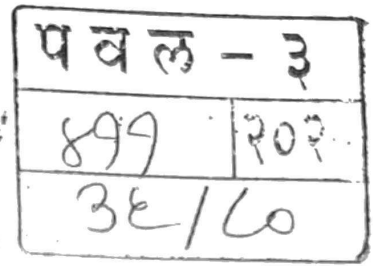 पवल - ३
४११ २०२
३६/८०